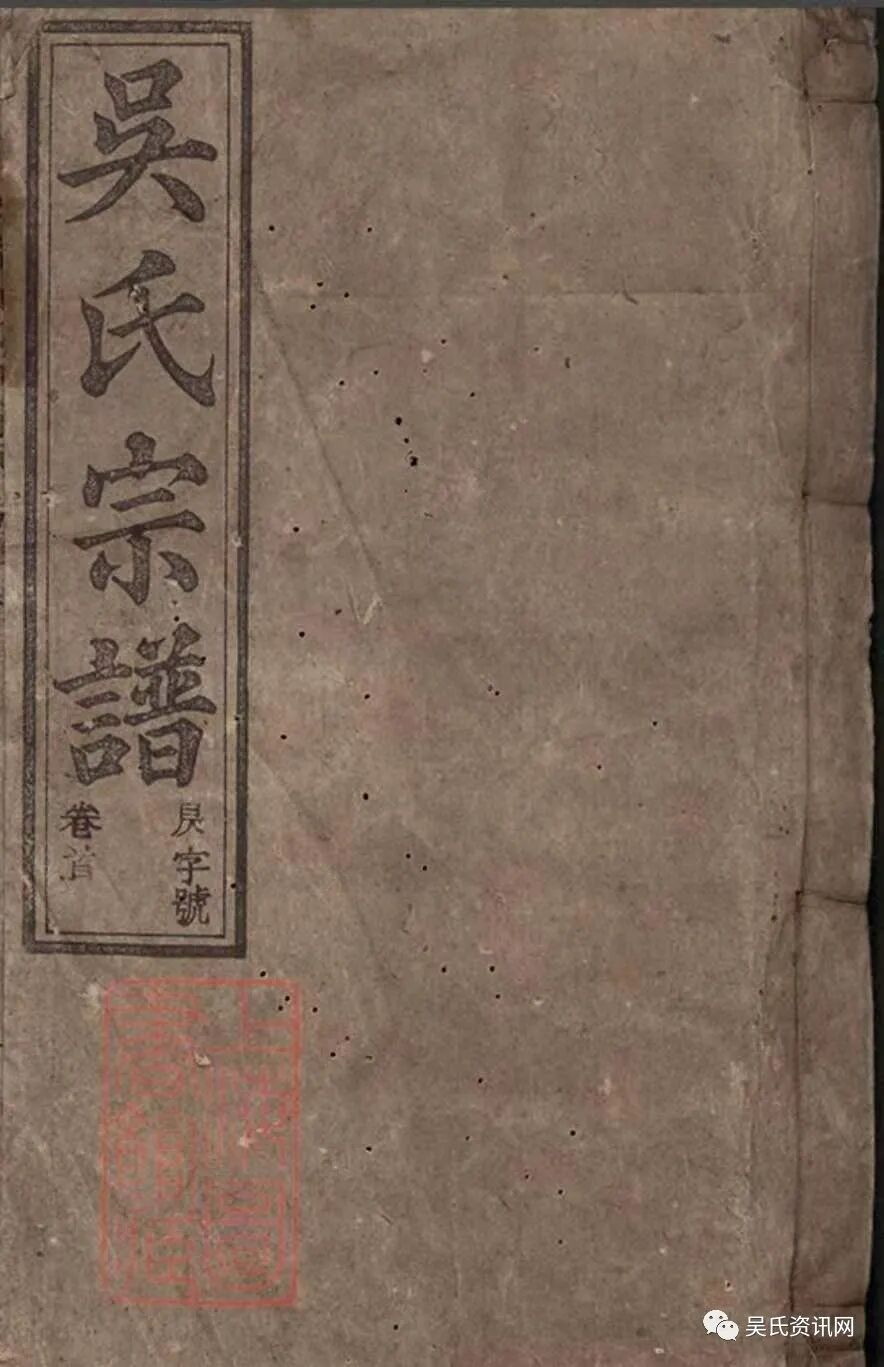 吳氏宗譜
昃字號
卷首
上海圖
書館藏
吴氏资讯网